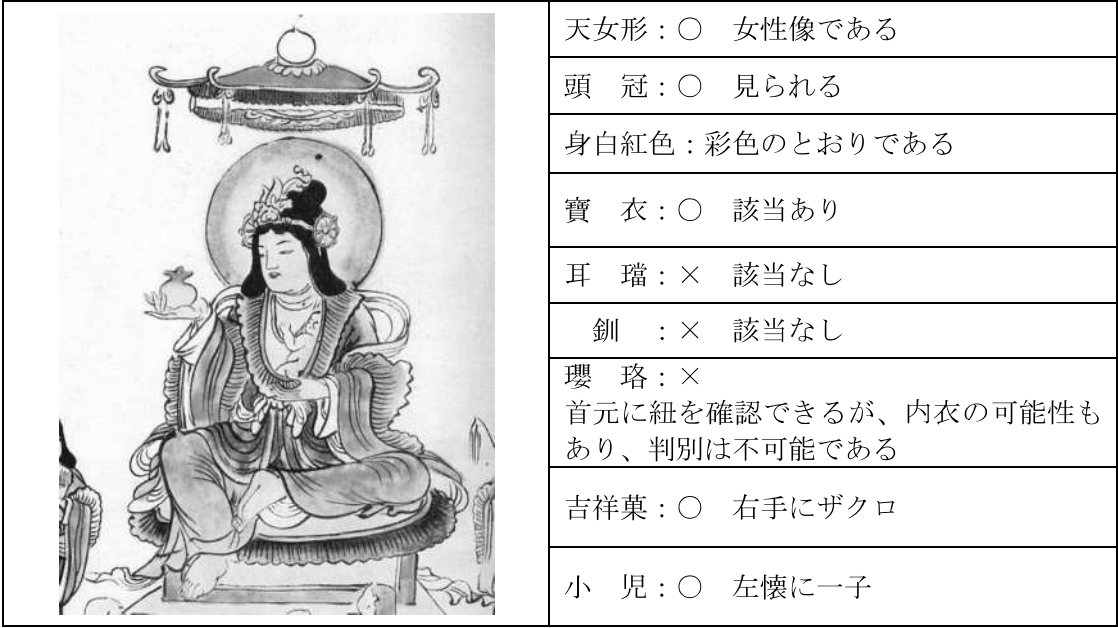 天女形：○　女性像である
頭　冠：○　見られる
身白紅色：彩色のとおりである
寶　衣：○　該当あり
耳　璫：×　該当なし
　釧　：×　該当なし
瓔　珞：×
首元に紐を確認できるが、内衣の可能性も
あり、判別は不可能である
吉祥菓：○　右手にザクロ
小　児：○　左懐に一子